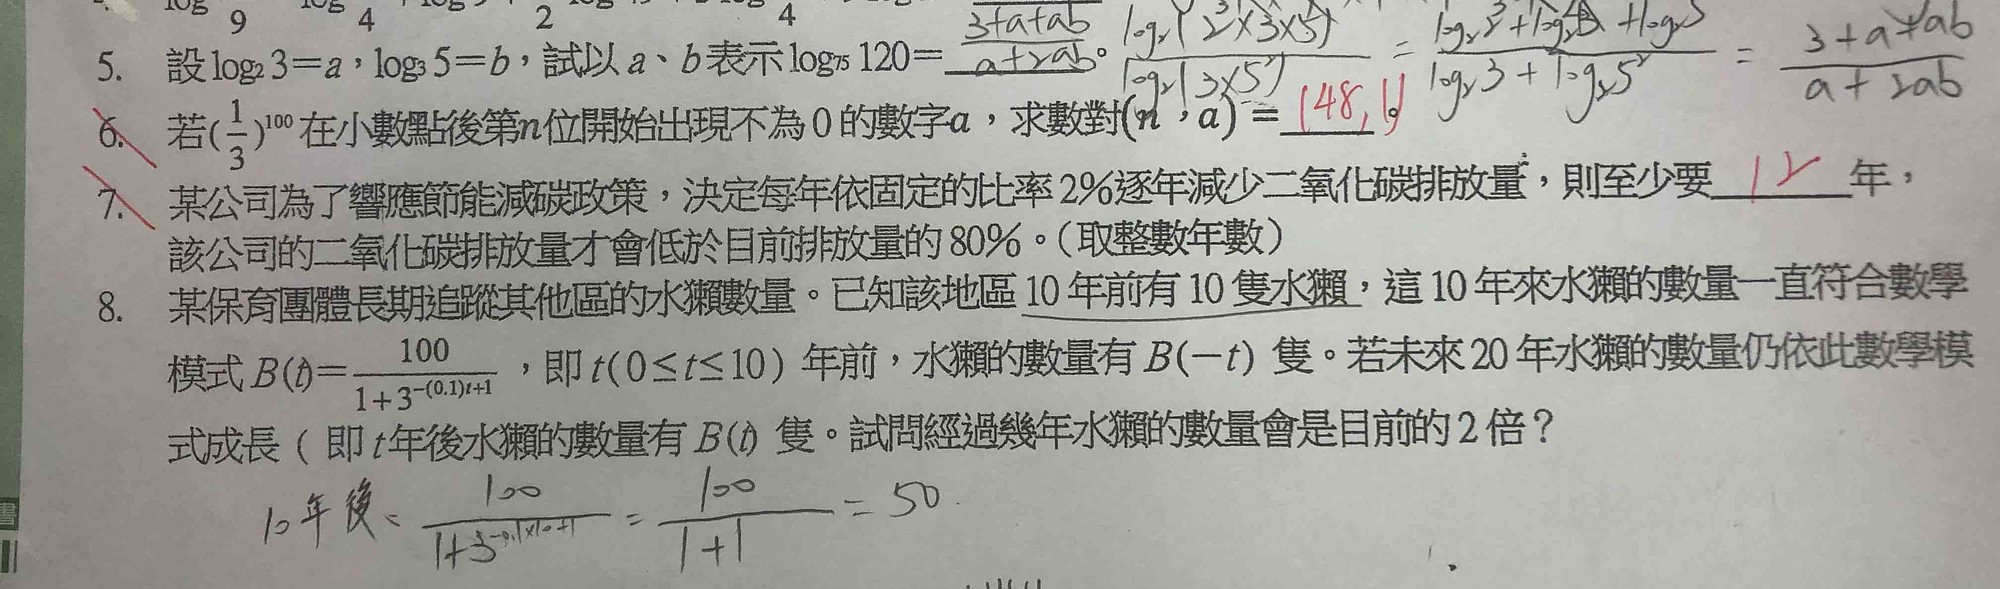 5. 設log₂ 3=a,log₃ 5=b,試以 a、b 表示 log₇₅ 120= (3+a+ab)/(a+2ab)。 log₂(2³×3×5)/log₂(3×5²) = (log₂2³+log₂3+log₂5)/(log₂3+log₂5²) = (3+a+ab)/(a+2ab)
6. 若(1/3)¹⁰⁰ 在小數點後第n位開始出現不為 0 的數字a,求數對(n,a)= (48,1)。
7. 某公司為了響應節能減碳政策,決定每年依固定的比率 2%逐年減少二氧化碳排放量,則至少要 12 年,
該公司的二氧化碳排放量才會低於目前排放量的 80%。(取整數年數)
8. 某保育團體長期追蹤其他區的水獺數量。已知該地區 10 年前有 10 隻水獺,這 10 年來水獺的數量一直符合數學
模式 B(t)=100/(1+3^(-(0.1)t+1)),即 t(0≤t≤10) 年前,水獺的數量有 B(-t) 隻。若未來 20 年水獺的數量仍依此數學模
式成長(即 t 年後水獺的數量有 B(t) 隻。試問經過幾年水獺的數量會是目前的 2 倍?
10年後= 100/(1+3^(-0.1×10+1)) = 100/(1+1) = 50